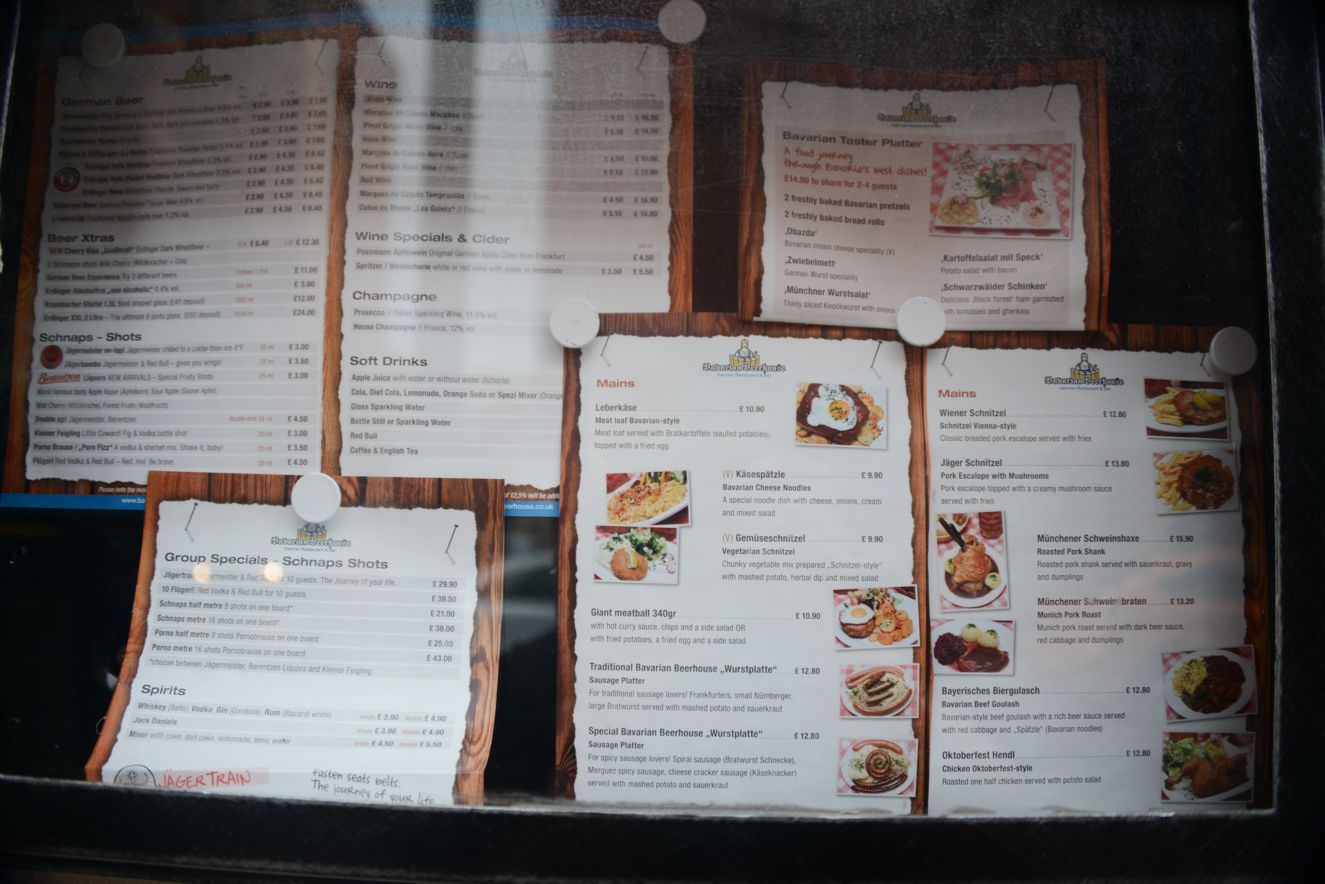 German Beer
£ 2.90 £ 3.90 £ 7.60
Beer Xtras
NEW Cherry Kiss „Goaßmaß“ Erdinger Dark Wheatbeer – £ 6.40 £ 12.30
2 Schnapps shots Wild Cherry (Wildkirsche) + Cola
German Beer Experience Try 3 different beers £ 11.00
Erdinger Alkoholfrei „non alcoholic“ 0.4% vol. £ 3.80
Krombacher Stiefel 1.5L Boot shaped glass (£40 deposit) £12.00
Erdinger XXL 3 Litre – The ultimate 6 pints glass (£60 deposit) £24.00
Schnaps - Shots
Jägermeister on-tap! Jägermeister chilled to a colder-than-ice 4°F 25 ml £ 3.00
Jägerbombs Jägermeister & Red Bull – gives you wings! 25 ml £ 3.50
Berentzen Liquors NEW ARRIVALS – Special Fruity Shots 25 ml £ 3.00
World famous tasty Apple liquor (Apfelkorn), Sour Apple (Saurer Apfel),
Wild Cherry (Wildkirsche), Forest Fruits (Waldfrucht)
Double up! Jägermeister, Berentzen double shot 50 ml £ 4.50
Kleiner Feigling Little Coward! Fig & Vodka bottle shot 20 ml £ 3.00
Porno Brause / „Porn Fizz“ A vodka & sherbet mix. Shake it, baby! 25 ml £ 3.50
Flügerl Red Vodka & Red Bull – Red. Hot. Be brave. 25 ml £ 4.50
Please note the
Wine
Pinot Grigio White Wine // Italy
Red Wine
Marques de Calado Tempranillo // £ 4.50 £ 16.90
Cotes du Rhone „Les Galets“ // France £ 5.10 £ 18.90
Wine Specials & Cider
Possmann Apfelwein Original German Apple Cider from Frankfurt £ 4.50
Spritzer / Weinschorle white or red wine with water or lemonade £ 3.50 £ 5.50
Champagne
Prosecco / Italian Sparkling Wine, 11.5% vol.
House Champagne // France, 12% vol.
Soft Drinks
Apple Juice with water or without water (Schorle)
Cola, Diet Cola, Lemonade, Orange Soda or Spezi Mixer (Orang
Glass Sparkling Water
Bottle Still or Sparkling Water
Red Bull
Coffee & English Tea
of 12,5% will be adde
eerhouse.co.uk
BavarianBeerhouse
German Restaurant & Bar
Bavarian Taster Platter
A food journey
through Bavaria's best dishes!
£14.90 to share for 2-4 guests
2 freshly baked Bavarian pretzels
2 freshly baked bread rolls
‚Obazda‘
Bavarian cream cheese speciality (V)
‚Zwiebelmett‘
German Wurst speciality
‚Münchner Wurstsalat‘
Thinly sliced Knockwurst with onions
‚Kartoffelsalat mit Speck‘
Potato salad with bacon
‚Schwarzwälder Schinken‘
Delicious ‚Black forest‘ ham garnished
with tomatoes and gherkins
BavarianBeerhouse
German Restaurant & Bar
Group Specials - Schnaps Shots
Jägertrain Jägermeister & Red Bull for 10 guests. The Journey of your life. £ 29.90
10 Flügerl! Red Vodka & Red Bull for 10 guests. £ 39.50
Schnaps half metre 8 shots on one board* £ 21.00
Schnaps metre 16 shots on one board* £ 38.00
Porno half metre 8 shots Pornobrause on one board £ 25.00
Porno metre 16 shots Pornobrause on one board £ 43.00
*choose between Jägermeister, Berentzen Liquors and Kleiner Feigling
Spirits
Whiskey (Bells) Vodka, Gin (Gordons), Rum (Bacardi white) single £ 3.90 double £ 4.90
Jack Daniels single £ 3.90 double £ 4.90
Mixer with coke, diet coke, lemonade, tonic water single £ 4.50 double £ 5.50
JÄGERTRAIN
Fasten seats belts.
The journey of your life
BavarianBeerhouse
German Restaurant & Bar
Mains
Leberkäse £ 10.90
Meat loaf Bavarian-style
Meat loaf served with Bratkartoffeln (sauted potatoes),
topped with a fried egg
(V) Käsespätzle £ 9.90
Bavarian Cheese Noodles
A special noodle dish with cheese, onions, cream
and mixed salad
(V) Gemüseschnitzel £ 9.90
Vegetarian Schnitzel
Chunky vegetable mix prepared „Schnitzel-style“
with mashed potato, herbal dip and mixed salad
Giant meatball 340gr £ 10.90
with hot curry sauce, chips and a side salad OR
with fried potatoes, a fried egg and a side salad
Traditional Bavarian Beerhouse „Wurstplatte“ £ 12.80
Sausage Platter
For traditional sausage lovers! Frankfurters, small Nürnberger,
large Bratwurst served with mashed potato and sauerkraut
Special Bavarian Beerhouse „Wurstplatte“ £ 12.80
Sausage Platter
For spicy sausage lovers! Spiral sausage (Bratwurst Schnecke),
Merguez spicy sausage, cheese cracker sausage (Käseknacker)
served with mashed potato and sauerkraut
BavarianBeerhouse
German Restaurant & Bar
Mains
Wiener Schnitzel £ 12.80
Schnitzel Vienna-style
Classic breaded pork escalope served with fries
Jäger Schnitzel £ 13.80
Pork Escalope with Mushrooms
Pork escalope topped with a creamy mushroom sauce
served with fries
Münchener Schweinshaxe £ 15.90
Roasted Pork Shank
Roasted pork shank served with sauerkraut, gravy
and dumplings
Münchener Schweinsbraten £ 13.20
Munich Pork Roast
Munich pork roast served with dark beer sauce,
red cabbage and dumplings
Bayerisches Biergulasch £ 12.80
Bavarian Beef Goulash
Bavarian-style beef goulash with a rich beer sauce served
with red cabbage and „Spätzle“ (Bavarian noodles)
Oktoberfest Hendl £ 12.80
Chicken Oktoberfest-style
Roasted one half chicken served with potato salad